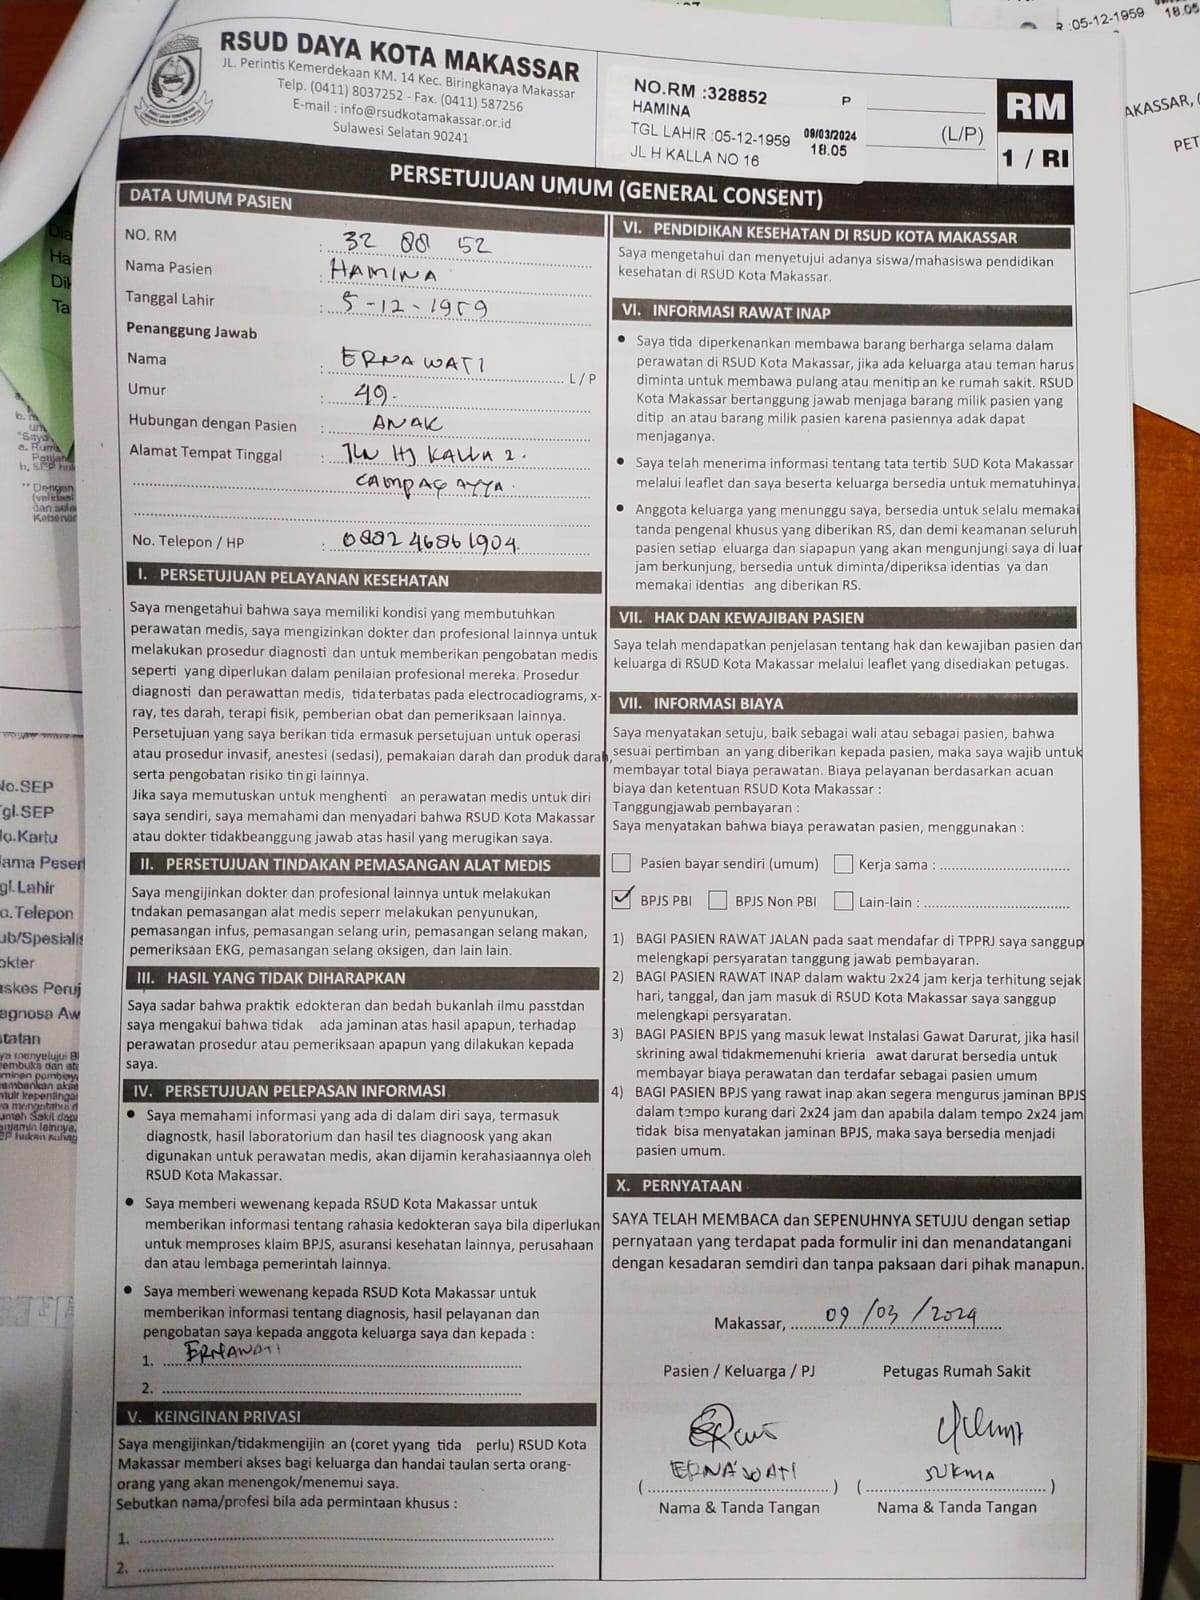 RSUD DAYA KOTA MAKASSAR
JL. Perintis Kemerdekaan KM. 14 Kec. Biringkanaya Makassar
Telp. (0411) 8037252 - Fax. (0411) 587256
E-mail : info@rsudkotamakassar.or.id
Sulawesi Selatan 90241
NO.RM :328852 P
HAMINA
TGL LAHIR :05-12-1959 09/03/2024
18.05
JL H KALLA NO 16
(L/P)
RM
1 / RI
PERSETUJUAN UMUM (GENERAL CONSENT)
DATA UMUM PASIEN
NO. RM : 32 88 52
Nama Pasien : HAMINA
Tanggal Lahir : 5-12-1959
Penanggung Jawab
Nama : ERNAWATI L / P
Umur : 49.
Hubungan dengan Pasien : ANAK
Alamat Tempat Tinggal : JLN HJ KALLA 2.
No. Telepon / HP :
I. PERSETUJUAN PELAYANAN KESEHATAN
Saya mengetahui bahwa saya memiliki kondisi yang membutuhkan
perawatan medis, saya mengizinkan dokter dan profesional lainnya untuk
melakukan prosedur diagnosti dan untuk memberikan pengobatan medis
seperti yang diperlukan dalam penilaian profesional mereka. Prosedur
diagnosti dan perawattan medis, tida terbatas pada electrocadiograms, x-
ray, tes darah, terapi fisik, pemberian obat dan pemeriksaan lainnya.
Persetujuan yang saya berikan tida ermasuk persetujuan untuk operasi
atau prosedur invasif, anestesi (sedasi), pemakaian darah dan produk darah,
serta pengobatan risiko tingi lainnya.
Jika saya memutuskan untuk menghenti an perawatan medis untuk diri
saya sendiri, saya memahami dan menyadari bahwa RSUD Kota Makassar
atau dokter tidakbeanggung jawab atas hasil yang merugikan saya.
II. PERSETUJUAN TINDAKAN PEMASANGAN ALAT MEDIS
Saya mengijinkan dokter dan profesional lainnya untuk melakukan
tndakan pemasangan alat medis seperr melakukan penyunukan,
pemasangan infus, pemasangan selang urin, pemasangan selang makan,
pemeriksaan EKG, pemasangan selang oksigen, dan lain lain.
III. HASIL YANG TIDAK DIHARAPKAN
Saya sadar bahwa praktik edokteran dan bedah bukanlah ilmu passtdan
saya mengakui bahwa tidak ada jaminan atas hasil apapun, terhadap
perawatan prosedur atau pemeriksaan apapun yang dilakukan kepada
saya.
IV. PERSETUJUAN PELEPASAN INFORMASI
• Saya memahami informasi yang ada di dalam diri saya, termasuk
diagnostk, hasil laboratorium dan hasil tes diagnoosk yang akan
digunakan untuk perawatan medis, akan dijamin kerahasiaannya oleh
RSUD Kota Makassar.
• Saya memberi wewenang kepada RSUD Kota Makassar untuk
memberikan informasi tentang rahasia kedokteran saya bila diperlukan
untuk memproses klaim BPJS, asuransi kesehatan lainnya, perusahaan
dan atau lembaga pemerintah lainnya.
• Saya memberi wewenang kepada RSUD Kota Makassar untuk
memberikan informasi tentang diagnosis, hasil pelayanan dan
pengobatan saya kepada anggota keluarga saya dan kepada :
1. ERNAWATI
2.
V. KEINGINAN PRIVASI
Saya mengijinkan/tidakmengijin an (coret yyang tida perlu) RSUD Kota
Makassar memberi akses bagi keluarga dan handai taulan serta orang-
orang yang akan menengok/menemui saya.
Sebutkan nama/profesi bila ada permintaan khusus :
1.
2.
VI. PENDIDIKAN KESEHATAN DI RSUD KOTA MAKASSAR
Saya mengetahui dan menyetujui adanya siswa/mahasiswa pendidikan
kesehatan di RSUD Kota Makassar.
VI. INFORMASI RAWAT INAP
• Saya tida diperkenankan membawa barang berharga selama dalam
perawatan di RSUD Kota Makassar, jika ada keluarga atau teman harus
diminta untuk membawa pulang atau menitip an ke rumah sakit. RSUD
Kota Makassar bertanggung jawab menjaga barang milik pasien yang
ditip an atau barang milik pasien karena pasiennya adak dapat
menjaganya.
• Saya telah menerima informasi tentang tata tertib SUD Kota Makassar
melalui leaflet dan saya beserta keluarga bersedia untuk mematuhinya.
• Anggota keluarga yang menunggu saya, bersedia untuk selalu memakai
tanda pengenal khusus yang diberikan RS, dan demi keamanan seluruh
pasien setiap eluarga dan siapapun yang akan mengunjungi saya di luar
jam berkunjung, bersedia untuk diminta/diperiksa identias ya dan
memakai identias ang diberikan RS.
VII. HAK DAN KEWAJIBAN PASIEN
Saya telah mendapatkan penjelasan tentang hak dan kewajiban pasien dan
keluarga di RSUD Kota Makassar melalui leaflet yang disediakan petugas.
VII. INFORMASI BIAYA
Saya menyatakan setuju, baik sebagai wali atau sebagai pasien, bahwa
sesuai pertimban an yang diberikan kepada pasien, maka saya wajib untuk
membayar total biaya perawatan. Biaya pelayanan berdasarkan acuan
biaya dan ketentuan RSUD Kota Makassar :
Tanggungjawab pembayaran :
Saya menyatakan bahwa biaya perawatan pasien, menggunakan :
Pasien bayar sendiri (umum) Kerja sama :
✓ BPJS PBI BPJS Non PBI Lain-lain :
1) BAGI PASIEN RAWAT JALAN pada saat mendafar di TPPRJ saya sanggup
melengkapi persyaratan tanggung jawab pembayaran.
2) BAGI PASIEN RAWAT INAP dalam waktu 2x24 jam kerja terhitung sejak
hari, tanggal, dan jam masuk di RSUD Kota Makassar saya sanggup
melengkapi persyaratan.
3) BAGI PASIEN BPJS yang masuk lewat Instalasi Gawat Darurat, jika hasil
skrining awal tidakmemenuhi krieria awat darurat bersedia untuk
membayar biaya perawatan dan terdafar sebagai pasien umum
4) BAGI PASIEN BPJS yang rawat inap akan segera mengurus jaminan BPJS
dalam tempo kurang dari 2x24 jam dan apabila dalam tempo 2x24 jam
tidak bisa menyatakan jaminan BPJS, maka saya bersedia menjadi
pasien umum.
X. PERNYATAAN
SAYA TELAH MEMBACA dan SEPENUHNYA SETUJU dengan setiap
pernyataan yang terdapat pada formulir ini dan menandatangani
dengan kesadaran semdiri dan tanpa paksaan dari pihak manapun.
Makassar, 09/03/2024
Pasien / Keluarga / PJ Petugas Rumah Sakit
( ERNAWATI ) ( SUKMA )
Nama & Tanda Tangan Nama & Tanda Tangan